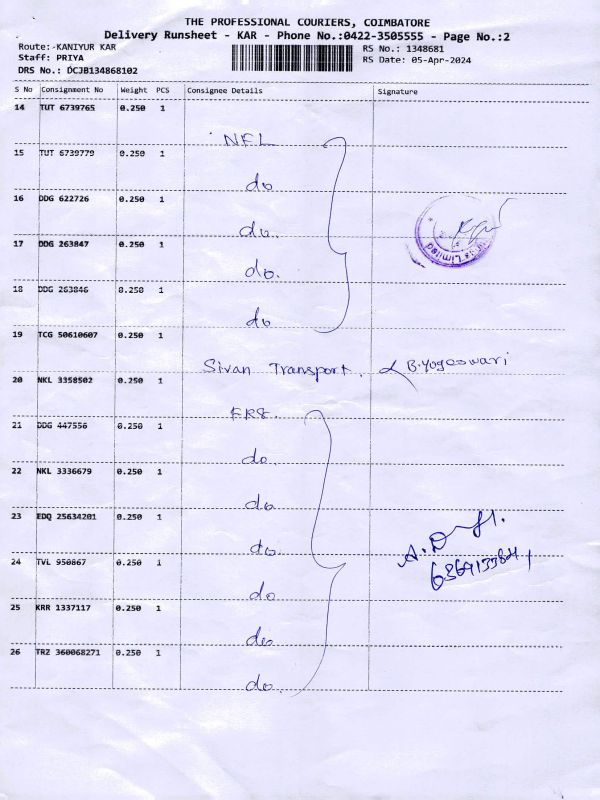 THE PROFESSIONAL COURIERS, COIMBATORE
Delivery Runsheet - KAR - Phone No.:0422-3505555 - Page No.:2
Route: KANIYUR KAR
RS No.: 1348681
Staff: PRIYA
RS Date: 05-Apr-2024
DRS No.: DCJB134868102
S No Consignment No Weight PCS Consignee Details Signature
14 TUT 6739765 0.250 1
NFL
15 TUT 6739779 0.250 1
do
16 DDG 622726 0.250 1
do.
17 DDG 263847 0.250 1
do.
18 DDG 263846 0.250 1
do
19 TCG 50610607 0.250 1
Sivan Transport. B.Yogeswari
20 NKL 3358502 0.250 1
21 DDG 447556 0.250 1
do.
22 NKL 3336679 0.250 1
do
23 EDQ 25634201 0.250 1
do.
A. D
24 TVL 950867 0.250 1
do
25 KRR 1337117 0.250 1
do
26 TRZ 360068271 0.250 1
do.
Limited